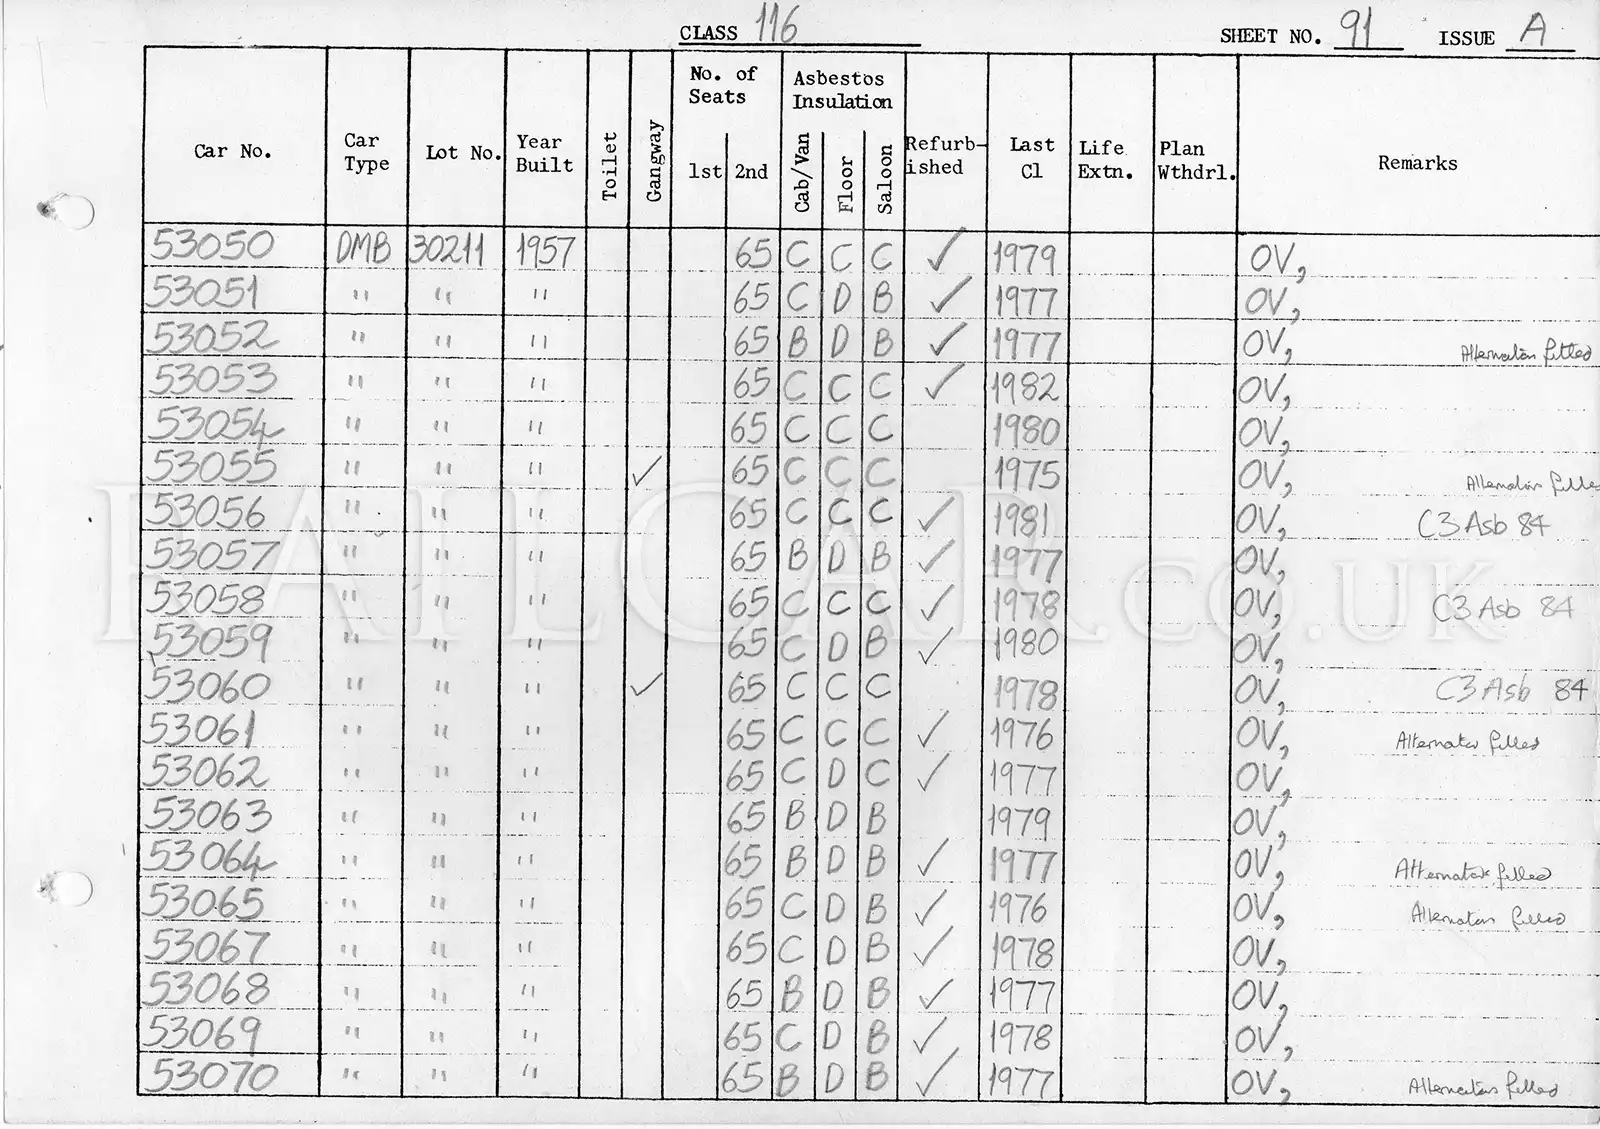 CLASS 116 SHEET NO. 91 ISSUE A
Car No. Car Type Lot No. Year Built Toilet Gangway No. of Seats 1st 2nd Asbestos Insulation Cab/Van Floor Saloon Refurb-ished Last Cl Life Extn. Plan Wthdrl. Remarks
53050 DMB 30211 1957 65 C C C ✓ 1979 OV,
53051 " " " 65 C D B ✓ 1977 OV,
53052 " " " 65 B D B ✓ 1977 OV, Alternators fitted
53053 " " " 65 C C C ✓ 1982 OV,
53054 " " " 65 C C C 1980 OV,
53055 " " " ✓ 65 C C C 1975 OV, Alternators fitted
53056 " " " 65 C C C ✓ 1981 OV, C3 Asb 84
53057 " " " 65 B D B ✓ 1977 OV,
53058 " " " 65 C C C ✓ 1978 OV, C3 Asb 84
53059 " " " 65 C D B ✓ 1980 OV,
53060 " " " ✓ 65 C C C 1978 OV, C3 Asb 84
53061 " " " 65 C C C ✓ 1976 OV, Alternator fitted
53062 " " " 65 C D C ✓ 1977 OV,
53063 " " " 65 B D B 1979 OV,
53064 " " " 65 B D B ✓ 1977 OV, Alternators fitted
53065 " " " 65 C D B ✓ 1976 OV, Alternators fitted
53067 " " " 65 C D B ✓ 1978 OV,
53068 " " " 65 B D B ✓ 1977 OV,
53069 " " " 65 C D B ✓ 1978 OV,
53070 " " " 65 B D B ✓ 1977 OV, Alternators fitted
RAILCAR.CO.UK